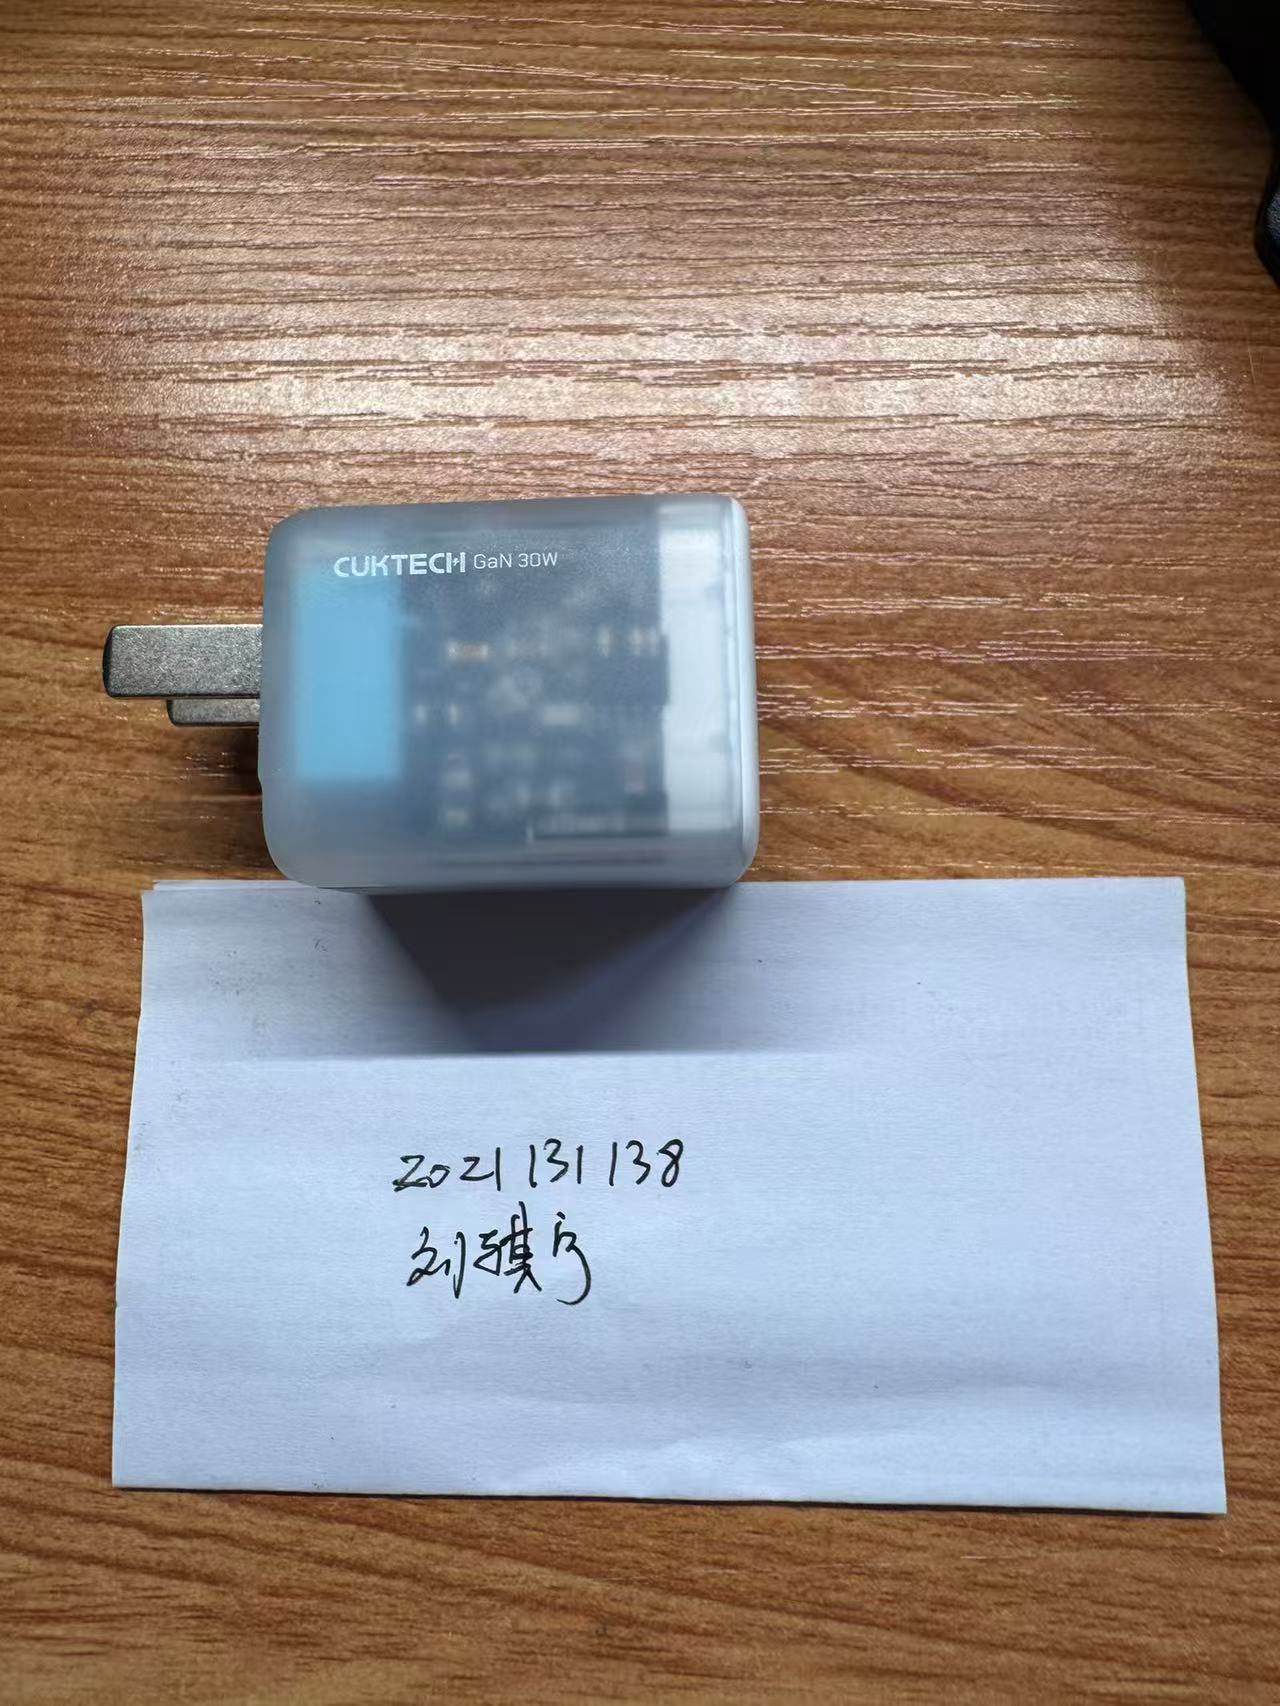 CUKTECH GaN 30W
2021131138
刘骐宁